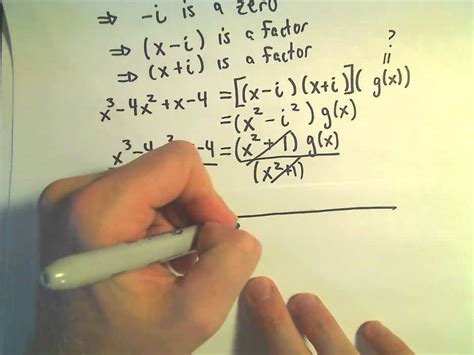 ⇒ -i is a zero
⇒ (x-i) is a factor
⇒ (x+i) is a factor
?
x³-4x²+x-4 = [(x-i)(x+i)]( g(x))
= (x²-i²) g(x)
x³-4 -4 = (x²+1) g(x)
(x²+1)